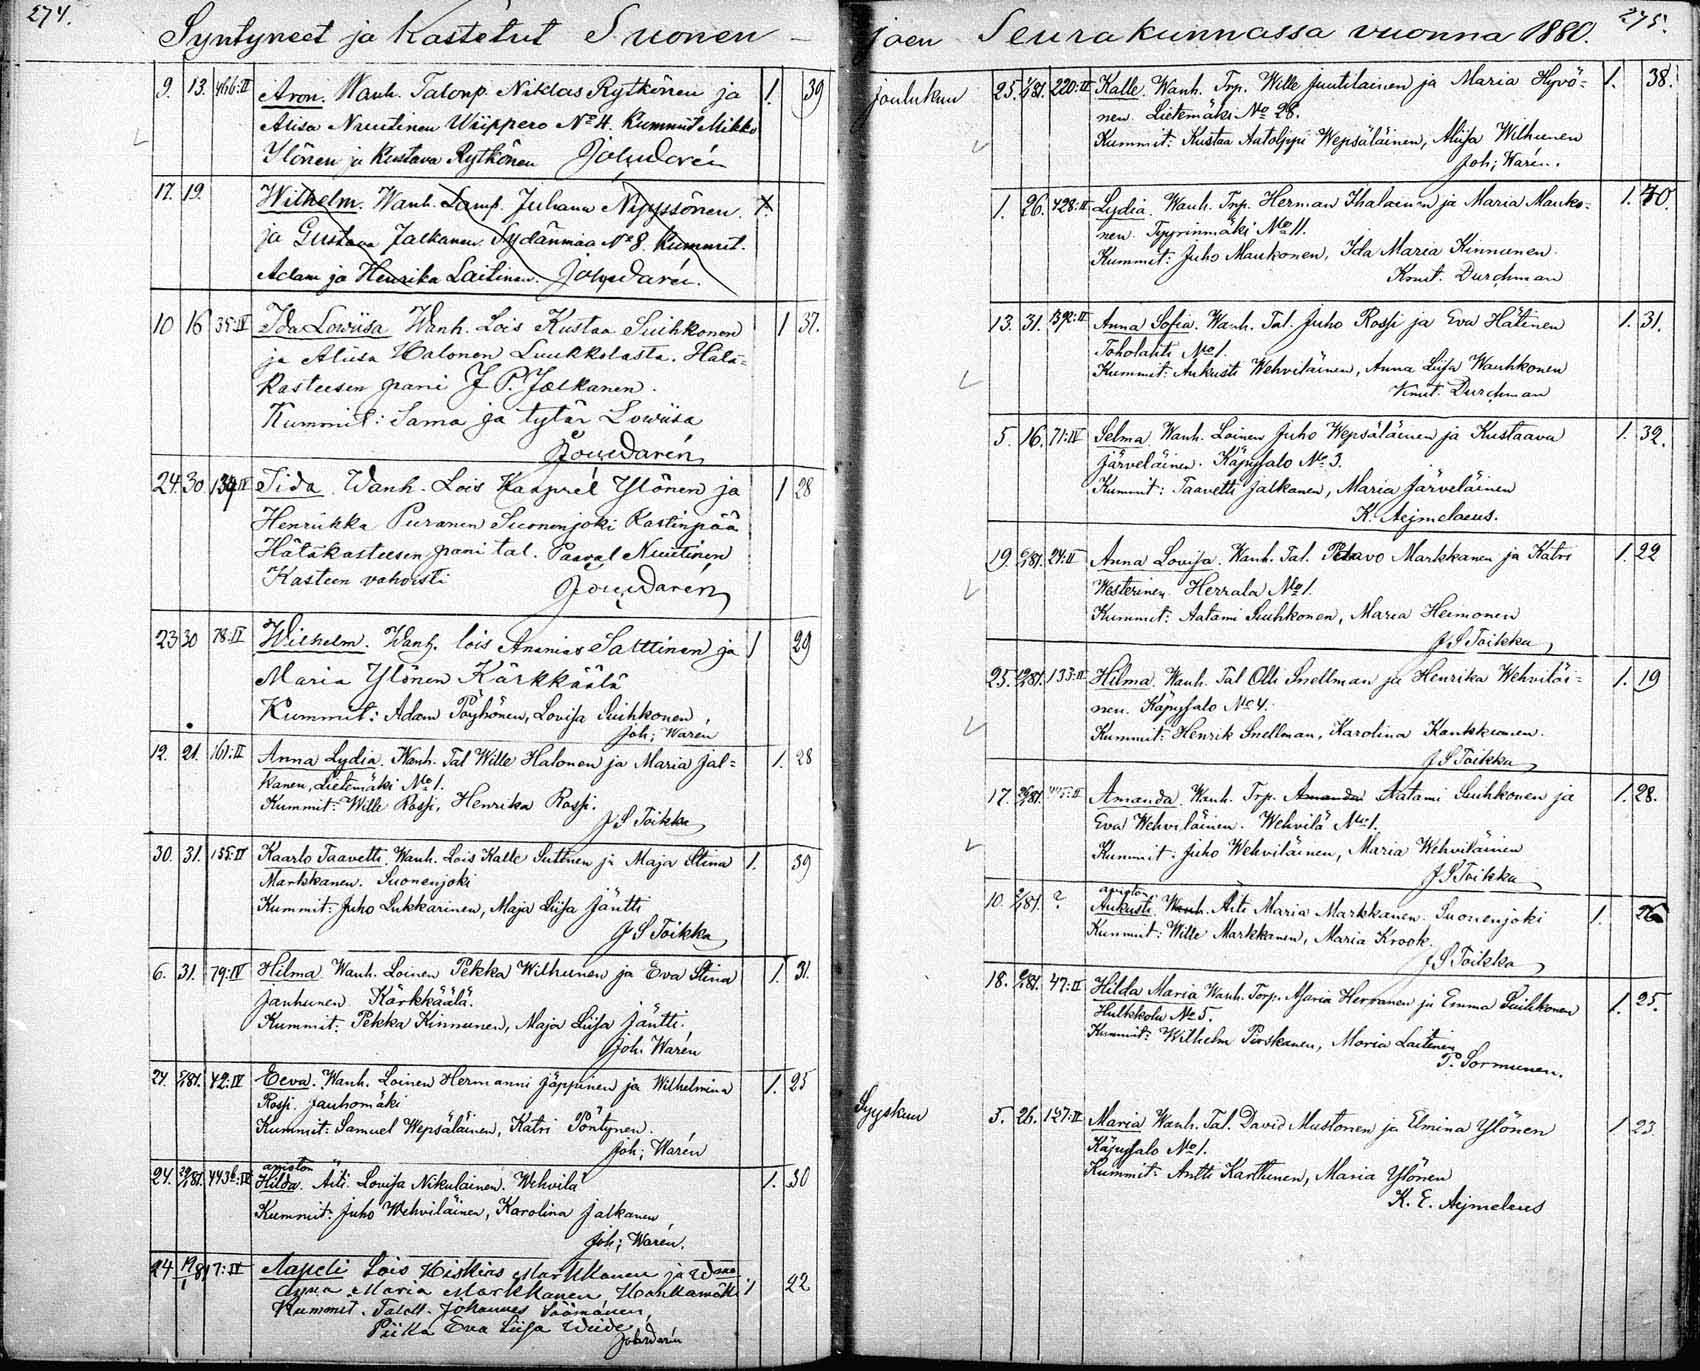 274.
Syntyneet ja Kastetut Suonen-
9. 13. 466:II Aron. Wanh. Talonp. Niklas Rytkönen ja 1. 39
Alisa Nuutinen Wiippero No 4. Kummit Mikko
Ylönen ja Kustava Rytkönen Joh. Warén
17. 19. Wilhelm. Wanh. Lamp. Juhana Nyyssönen. 1.
ja Gustava Jalkanen. Sydänmaa No 8. Kummit.
Adam ja Henrika Laitinen. Joh. Warén.
10 16 35:IV Ida Lowiisa Wanh. Lois Kustaa Suihkonen 1 37.
ja Aliisa Halonen Luukkolasta. Hätä-
kasteesen pani J. P. Jalkanen.
Kummit: Sama ja tytär Lowiisa
Joh. Warén
24 30 IV Tida Wanh. Lois Kaaprél Ylönen ja 1 28
Henrikka Puranen Suonenjoki Kastinpää
Hätäkasteesen pani tal. Paaval Nuutinen
Kasteen vahvisti Joh. Warén
23 30 78:IV Wilhelm. Wanh. lois Ananias Satttinen ja 1 29
Maria Ylönen Kärkkäälä
Kummit: Adam Pöyhönen, Lovisa Suihkonen,
Joh; Warén
12. 21. 161:II Anna Lydia. Wanh. Tal Wille Halonen ja Maria Jal= 1. 28
kanen, Lietemäki No 1.
Kummit: Wille Rossi, Henrika Rossi.
J S Toikka
30. 31. 155:IV Kaarlo Taavetti. Wanh. Lois Kalle Suttinen ja Maja Stina 1. 39
Markkanen. Suonenjoki
Kummit: Juho Lukkarinen, Maja Liisa Jäntti
J S Toikka
6. 31. 79:IV Hilma. Wanh. Loinen Pekka Wilhunen ja Eva Stina 1. 31.
Janhunen. Kärkkäälä.
Kummit: Pekka Kinnunen, Maja Liisa Jäntti.
Joh. Warén
24. /81. 42:IV Eeva. Wanh. Loinen Hermanni Jäppinen ja Wilhelmina 1. 25
Rossi. Jauhomäki
Kummit: Samuel Wepsäläinen, Katri Pöntynen.
Joh; Warén
avioton
24. /81. 443b:IV Hilda. Äiti Lovisa Nikulainen. Wehvilä 1. 30
Kummit: Juho Wehviläinen, Karolina Jalkanen
Joh; Warén.
24 19/1 81 7:IV Aapeli Lois Hiskias Markkanen ja 1 22
Maria Markkanen
Kummit. Johannes Säämänen,
Piika Eva Liisa
Joh. Warén
275.
joen Seurakunnassa vuonna 1880.
joulukuu 25. 1/81. 220:II Kalle. Wanh. Trp. Wille Juutilainen ja Maria Hyvö= 1. 38.
nen. Lietemäki No 28.
Kummit: Kustaa Wepsäläinen, Wilhunen
Joh; Warén.
1. 26. 428:II Lydia. Wanh. Trp. Herman Ihalainen ja Maria Mauko- 1. 40.
nen. Tyyrinmäki No 11.
Kummit: Juho Maukonen, Ida Maria Kinnunen.
Knut. Durchman
13. 31. 392:II Anna Sofia. Wanh. Tal. Juho Rossi ja Eva Hätinen 1. 31.
Toholahti No 1.
Kummit: Aukusti Wehviläinen, Anna Liisa Wanhkonen
Knut. Durchman
5. 16. 71:IV Selma Wanh. Loinen Juho Wepsäläinen ja Kustaava 1. 32.
Järveläinen. Käpysalo No 3.
Kummit: Taavetti Jalkanen, Maria Järveläinen
K. Aejmelaeus.
19. /81. 24:II Anna Lovisa. Wanh. Tal. Paavo Markkanen ja Katri 1. 22
Westerinen Herrala No 1.
Kummit: Aatami Suihkonen, Maria Heimonen
J S Toikka
25. /81. 133:II Hilma. Wanh. Tal Olli Snellman ja Henrika Wehviläi= 1. 19
nen. Käpysalo No 4.
Kummit: Henrik Snellman, Karolina Kankkunen.
J S Toikka
17. /81. 445:II Amanda. Wanh. Trp. Amanda Aatami Suihkonen ja 1. 28.
Eva Wehviläinen. Wehvilä No 1.
Kummit: Juho Wehviläinen, Maria Wehviläinen
J S Toikka
avioton
10. /81. ? Aukusti. Wanh. Äiti Maria Markkanen. Suonenjoki 1. 26
Kummit: Wille Markkanen, Maria Krook.
J S Toikka
18. /81. 47:II Hilda Maria Wanh. Torp. Herranen ja Emma Suihkonen 1. 25.
Hulkkola No 5.
Kummit: Wilhelm Pirskanen, Maria Laitinen
P. Sormunen.
Syyskuu 5. 26. 127:II Maria Wanh. Tal. David Mustonen ja Elmina Ylönen 1 23.
Käpysalo No 1.
Kummit: Antti Karttunen, Maria Ylönen
K. E. Aejmelaeus